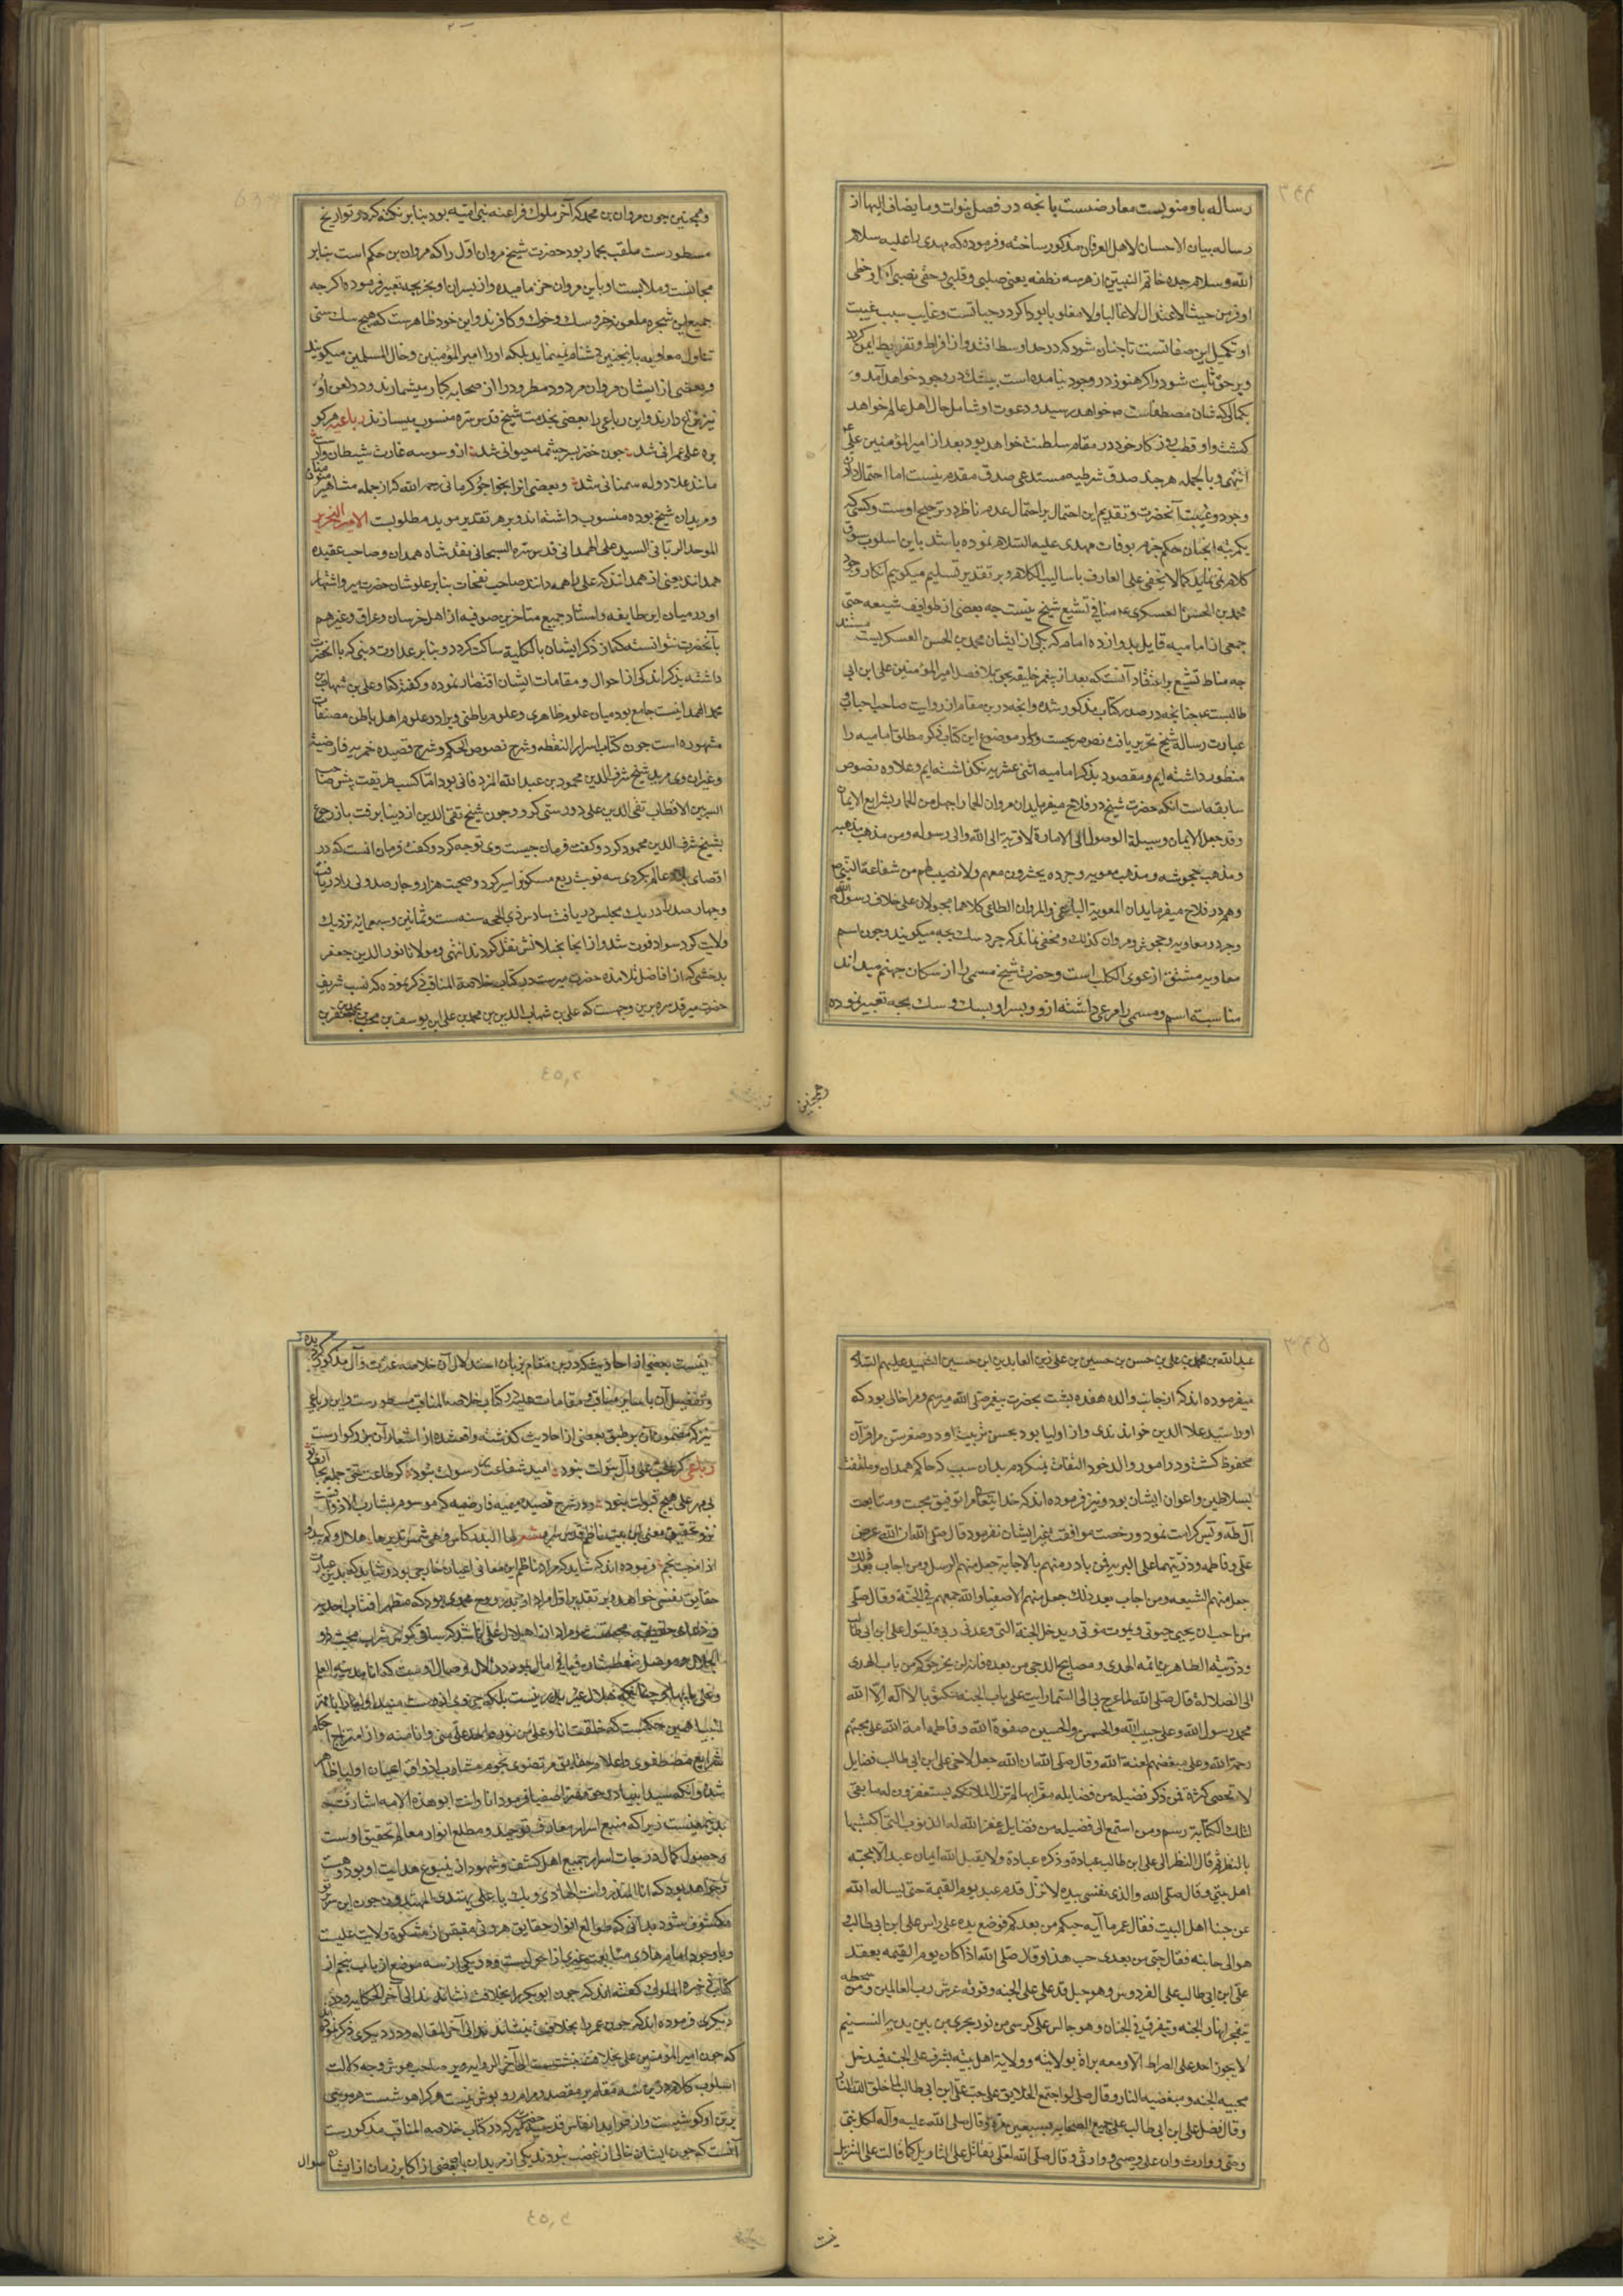 رساله باو منویست معارضست بانچه در فصل نبوات و ما یضاف الیها از
رساله بیان الاحسان لاهل العرفان مذکور ساخته و فرموده که مهدی را علیه سلام
الله و سلام جده خاتم النبیین از هر سه نطفه یعنی صلبی و قلبی و حقی نصیبی اکمل و حظی
اوفر من حیث الاعتدال لا غالبا و لا مغلوبا بود اگر در حیاتست و غایب سبب غیبت
او تکمیل این صفاتست تا چنان شود که در حد اوسط افتد و از افراط و تفریط ایمن گردد
و بر حق ثابت شود و اگر هنوز در وجود نیامده است بیشک در وجود خواهد آمد و
بکمالی که شان مصطفاست خواهد رسید و دعوت او شامل حال اهل عالم خواهد
گشت و او قطب روزگار خود در مقام سلطنت خواهد بود بعد از امیرالمؤمنین علی
انتهی و بالجمله هر چند صدق شرطیه مستدعی صدق مقدم نیست اما احتمال دادن
وجود و غیبت آنحضرت و تقدیم این احتمال بر احتمال عدم ناظر در ترجیح اوست و کسی که
یکمرتبه انچنان حکم جزم بوفات مهدی علیه السلام نموده باشد باین اسلوب سوق
کلام نمی نماید کما لا یخفی علی العارف باسالیب الکلام و بر تقدیر تسلیم میگوییم انکار وجود
محمد بن الحسن العسکری منافی تشیع شیخ نیست چه بعضی از طوایف شیعه حتی
جمعی از امامیه قایل بدوازده امام که یکی از ایشان محمد بن الحسن العسکریست نیستند
چه مناط تشیع بر اعتقاد آنست که بعد از پیغمبر خلیفه بحق بلا فصل امیرالمؤمنین علی ابن ابی
طالبست چنانچه در صدر کتاب مذکور شده و انچه درین مقام از روایت صاحب احباب و
عبارت رساله شیخ تحریر یافت نص صریحست و لهذا در موضوع این کتاب ذکر مطلق امامیه را
منظور داشته ایم و مقصود بذکر امامیه اثنی عشریه نگذاشته ایم و علاوه نصوص
سابقه است انکه حضرت شیخ در فلاح میفرماید ان مروان الحمار اجهل من الحمار بشرایع الایمان
وقد جعل الایمان وسیلة الوصول الی الامارة لا قربة الی الله والی رسوله ومن مذهب مذهبه
و مذهب عجوشه و مذهب معویه وجرده یحشرون معهم ولا نصیب لهم من شفاعة النبی ص
و هم در فلاح میفرماید ان المعویة الباغی والمروان الطاغی کلاهما مجبولان علی خلاف رسول الله
وجرد و معاویه و عجوش و مروان کذلك و مخفی نماند که جرد سك بچه میکویند و چون اسم
معاویه مشتق از عوی الکلب است و حضرت شیخ مسمی را از سکان جهنم میداند
مناسبت اسم و مسمی را مرعی داشته از و و پسر او بسك و سك بچه تعبیر نموده
وهمچنین
و همچنین چون مروان بن محمد که آخر ملوك فراعنه بنی امیه بود بنابر نکته که در تواریخ
مسطورست ملقب بحمار بود حضرت شیخ مروان اول را که مروان بن حکم است بنابر
مجانست و ملابست او باین مروان خر نامیده و از پسران او بخر بچه تعبیر فرموده اگر چه
جمیع این شجره ملعونه خر و سك و خوك و کافرند و این خود ظاهرست که هیچ سك سنی
تناول معاویه بانچنین دشنام نمینماید بلکه او را امیرالمؤمنین و خال المسلمین میکویند
و بعضی از ایشان مروان مردود مطرود را از صحابه کبار میشمارند و در لعن او
نیز نزاع دارند و این رباعی را بعضی بخدمت شیخ قدس سره منسوب میسازند رباعیه هر کو
بره علی عمرانی شد چون خضر بسرچشمه حیوانی شد از وسوسه غارت شیطان وارست
مانند علا دوله سمنانی شد و بعضی انرا بخواجو کرمانی رحمه الله که از جمله مشاهیر
و مریدان شیخ بوده منسوب داشته اند و بر هر تقدیر موید مطلوبست الامیر النحریر
الموحد الربانی السید علی الهمدانی قدس سره السبحانی نقد شاه همدان و صاحب عقیده
همدانند یعنی از همدانند که علی را همه دانند صاحب نفحات بنابر علو شان حضرت میر و اشتهار
او در میان این طایفه و استناد جمیع متاخرین صوفیه از اهل خراسان و عراق و غیرهم
بآنحضرت نتوانسته که از ذکر ایشان بالکلیه ساکت گردد و بنابر عداوت دینی که با آنحضرت
داشته بذکر اندکی از احوال و مقامات ایشان اقتصار نموده و گفته که میر سید علی بن شهاب بن
محمد الهمدانیست جامع بود میان علوم ظاهری و علوم باطنی و برا در علوم اهل باطن مصنفات
مشهوره است چون کتاب اسرار النقطه و شرح فصوص الحکم و شرح قصیده خمریه فارضیه
و غیر ان وی مرید شیخ شرف الدین محمود بن عبد الله المزدقانی بود اما کسب طریقت پیش صاحب
السر بین الاقطاب تقی الدین علی دوستی کرد و چون شیخ تقی الدین از دنیا برفت باز رجوع
بشیخ شرف الدین محمود کرد و گفت فرمان چیست وی توجه کرد و گفت فرمان انست که در
اقصای عالم بگردی سه نوبت ربع مسکون را سیر کرد و صحبت هزار و چهار صد ولی را دریافت
و چهار صد را در یك مجلس دریافت سادس ذی الحجه سنه ست و ثمانین و سبعمائه نزدیك
ولایت کبر سواد فوت شد و از انجا بختلانش نقل کردند انتهی و مولانا نور الدین جعفر
بدخشی که از افاضل تلامذه حضرت میرست در کتاب خلاصة المناقب ذکر نموده که نسب شریف
حضرت میر قدس سره برین وجهست که علی بن شهاب الدین بن محمد بن علی ابن یوسف بن محب بن محمد بن جعفر بن
عبد الله بن محمد بن علی بن حسن بن حسین بن علی زین العابدین ابن حسین الشهید علیهم السلام
میفرموده اند که از جانب والده هفده پشت بحضرت پیغمبر صلی الله میرسم و مرا خالی بود که
او را سید علا الدین خواندندی و از اولیا بود بحسن تربیت او در صغر سن مرا قرآن
محفوظ گشت و در امور والد خود التفات نمیکردم بدان سبب که حاکم همدان و ملتفت
بسلاطین و اعوان ایشان بود و نیز فرموده اند که خدایتعالی مرا توفیق محبت و متابعت
آل طه و یس کرامت نمود و رخصت موافقت بغیر ایشان نفرمود قال صلی الله ان الله عرض
علی و فاطمه و ذریتهما علی البریه فمن بادر منهم بالاجابة جعل منهم الرسل ومن اجاب بعد ذلك
جعل منهم الشیعه ومن اجاب بعد ذلك جعل منهم الاصفیا والله جمعهم فی الجنة وقال صلی
من احب ان یحیی حیوتی و یموت موتی و یدخل الجنة التی وعدنی ربی فلیتول علی ابن ابی طالب
و ذریته الطاهرین ائمة الهدی و مصابیح الدجی من بعده فانهم لن یخرجوکم من باب الهدی
الی الضلالة قال صلی الله لما عرج بی الی السما رایت علی باب الجنة مکتوبا لا اله الا الله
محمد رسول الله و علی حبیب الله والحسن والحسین صفوة الله و فاطمه امة الله علی محبهم
رحمة الله و علی مبغضهم لعنة الله وقال صلی الله ان الله جعل لاخی علی ابن ابی طالب فضایل
لا تحصی کثرة فمن ذکر فضیله من فضایله مقرا بها لم تزل الملائکه یستغفرون له ما بقی
لتلك الکتابة رسم ومن استمع الی فضیله من فضایله غفر الله له الذنوب التی اکتسبها
بالنظر ثم قال النظر الی علی ابن طالب عبادة و ذکره عبادة ولا یقبل الله ایمان عبد الا بمحبته
اهل بیتی وقال صلی الله والذی نفسی بیده لا تزل قدم عبد یوم القیمة حتی یساله الله
عن حبنا اهل البیت فقال عمر ما آیة حبکم من بعدکم فوضع یده علی راس علی ابن ابی طالب و
هو الی جانبه فقال حبی من بعدی حب هذا وقال صلی الله اذا کان یوم القیمه یقعد
علی ابن ابی طالب علی الفردوس وهو جبل قد علی علی الجنه و فوقه عرش رب العالمین ومن سفحه
یتفجر انهار الجنه و یتفرق فی الجنان وهو جالس علی کرسی من نور یجری من بین یدیه التسنیم
لا یجوز احد علی الصراط الا و معه براة بولایته و ولایة اهل بیته یشرف علی الجنه فیدخل
محبیه الجنه و مبغضیه النار وقال صلی لو اجتمع الخلایق علی حب علی ابن ابی طالب لما خلق الله النار
وقال فضل علی ابن ابی طالب علی جمیع الصحابه بسبعین مرتبة وقال صلی الله علیه وآله لکل نبی
وصی و وارث وان علی وصیی و وارثی وقال صلی الله لعلی یقاتل علی التاویل کما قاتلت علی التنزیل
نیست بعضی از احادیث که درین مقام بزبان استدلال آن خلاصه عترت و آل مذکور گردیده
و تفصیل آن با سایر مناقب و مقامات میر در کتاب خلاصه المناقب مسطورست و این رباعی
نیز که مضمون آن بر طبق بعضی از احادیث گذشته واقعشده از اشعار آن بزرگوارست
رباعی گر حب علی و آل بتولت نبود امید شفاعت رسولت نبود گر طاعت حق جمله بجا آری تو
بی مهر علی هیچ قبولت نبود و در شرح قصیده میمیه فارضیه که موسوم بمشارب الاذواقست
نیز در تحقیق معنی این بیت ناظم قدس سره شعر لها البدر کاس وهی شمس تدیرها هلال وکم یبدو
اذا مزجت نجم فرموده اند که شاید که مراد ناظم این معانی اعیان خارجی بود و شاید که بدین عبارت
حقایق نفسی خواهد و بر تقدیر اول مراد او ببدر روح محمدی بود که مظهر افتاب احدیت
شرایع مصطفوی و اعلام حقایق مرتضوی نجوم مشارب اذواق اعیان اولیا ظاهر
شده و انکه سید انبیا و حق اصفیا فرمود انا وانت ابوا هذه الامه اشارت
بدین معنیست زیرا که منبع اسرار معارف توحید و مطلع انوار معالم تحقیق اوست
و حصول کمال درجات اسرار جمیع اهل کشف و شهود از ینبوع هدایت او بود و هست
و خواهد بود که انا المنذر وانت الهادی و بك یا علی یهتدی المهتدون چون این سر بر تو
مکشوف شود بدانی که طوالع انوار حقایق هر ولی مقتبس از مشکوة ولایت علیست
و با وجود امام هادی متابعت غیری از احولیست و در یکی از سه موضع از باب پنجم از
کتاب ذخیرة الملوك گفته اند که چون ابوبکر را بخلافت نشاندند الی آخر الحکایه و در
دیگری فرموده اند که چون عمر را بخلافت نشاندند الی آخر المقاله و در دیگری ذکر نموده
که چون امیر المؤمنین علی بخلافت نشست الی آخر الروایه و بر صاحب هوش وجه دلالت
اسلوب کلام درین سه مقام بر مقصد و مرام روپوش نیست هر کرا هوشست هر مویی
بر تن او گوشیست و از فواید انفاس قدسیه حضرت میر که در کتاب خلاصه المناقب مذکورست
آنست که چون ایشان خالی از غضب نبودند یکی از مریدان با بعضی از اکابر زمان از ایشان سوال